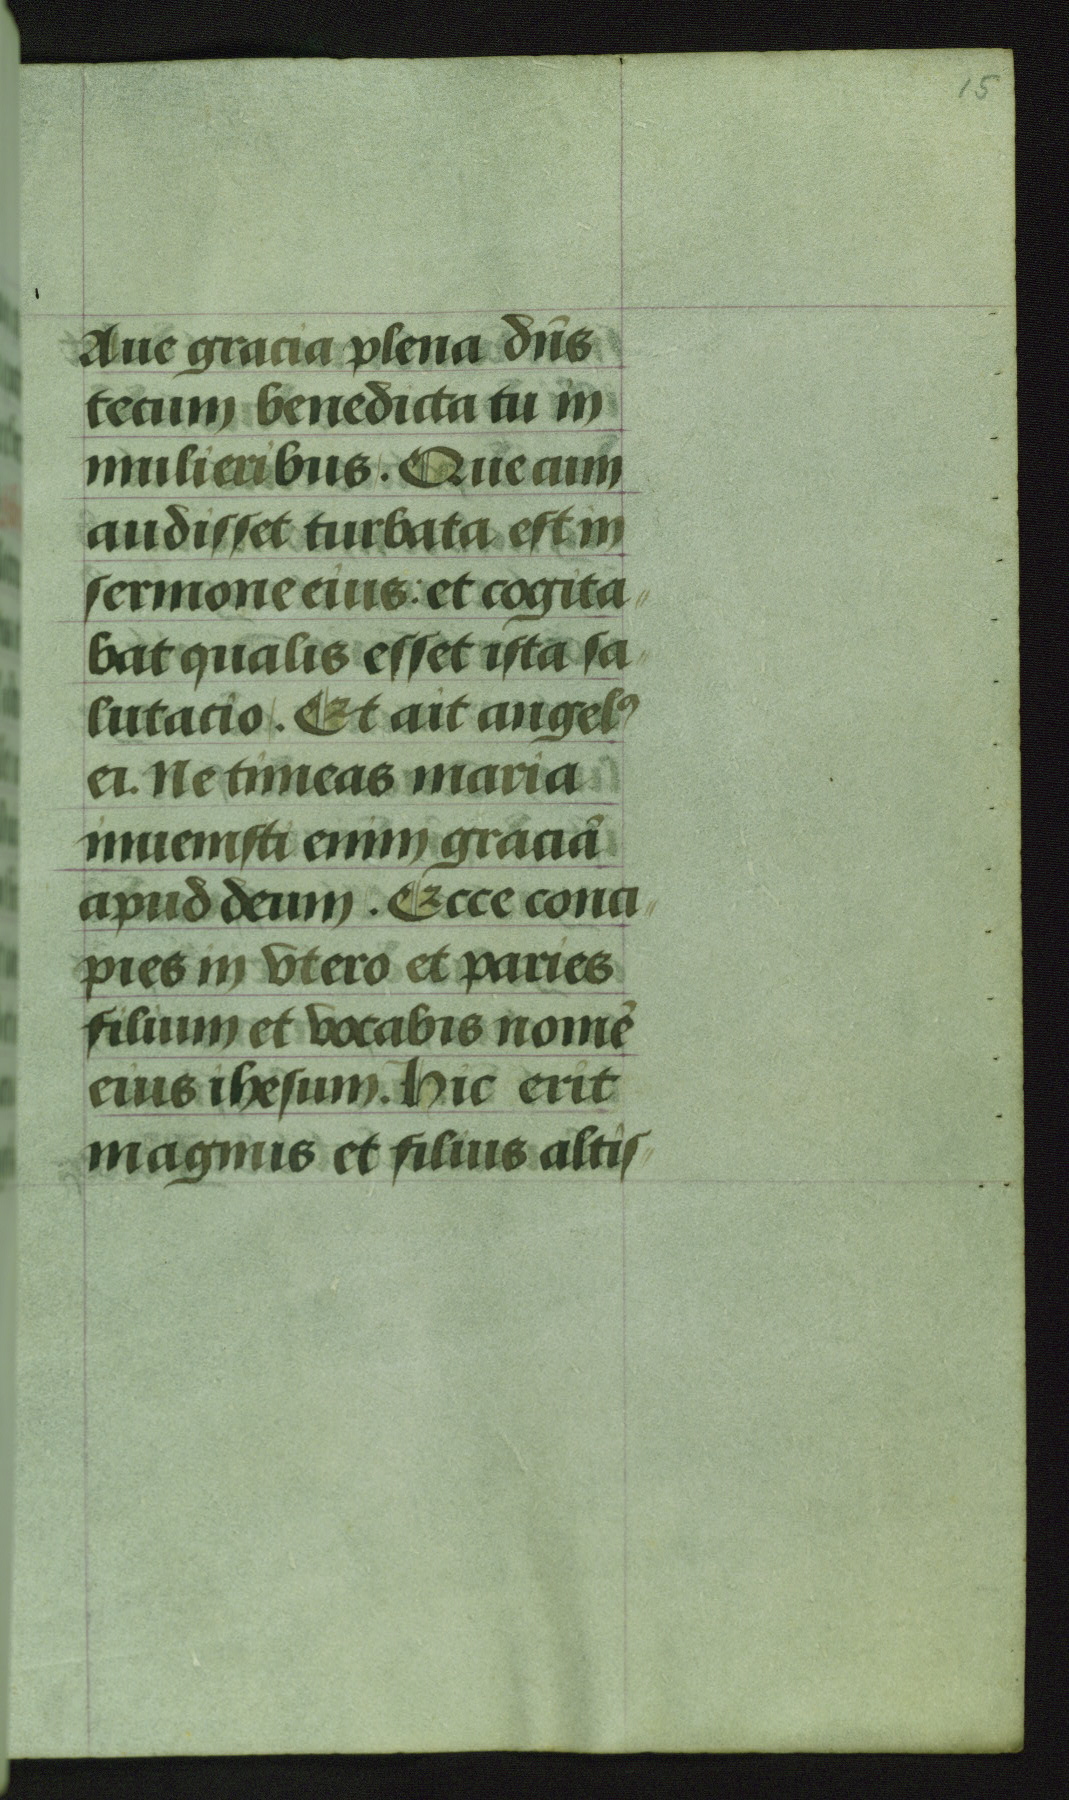 15
Aue gracia plena dn̄s
tecum benedicta tu in
mulieribus. Que cum
audisset turbata est in
sermone eius: et cogita„
bat qualis esset ista sa„
lutacio. Et ait angelꝰ
ei. Ne timeas maria
inuenisti enim graciā
apud deum. Ecce conci„
pies in vtero et paries
filium et vocabis nomē
eius ihesum. Hic erit
magnus et filius altis„